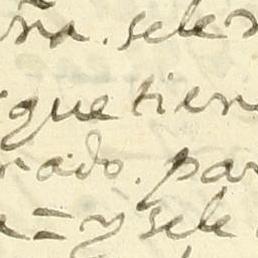 ña. selen
que tien
rado. par
a = y sele